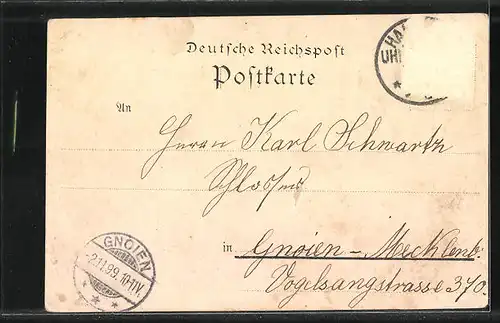 Deutsche Reichspost
Postkarte
HA
UH
An
Herrn Karl Schwartz
in Gnoien – Mecklenb.
Vogelsangstrasse 370.
GNOIEN
2.11.99.